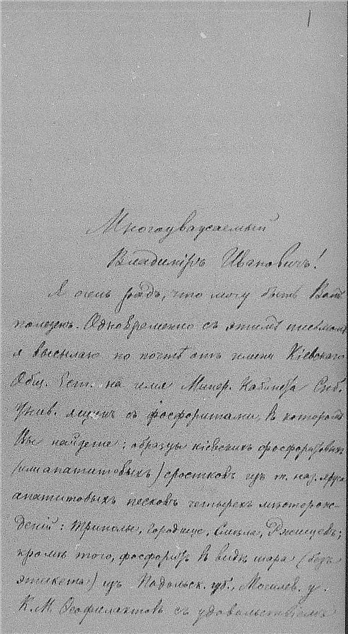 1
Многоуважаемый
Владиміръ Ивановичъ!
Я очень радъ, что могу быть Вамъ
полезенъ. Одновременно съ этимъ письмомъ
я высылаю по почтѣ отъ имени Кіевскаго
Общ. Ест. на имя Минер. Кабинета Спб.
Унив. ящикъ съ фосфоритами, въ которомъ
Вы найдете: образцы кіевскихъ фосфоритовыхъ
(или апатитовыхъ) сростковъ изъ т. наз. яруса
апатитовыхъ песковъ четырехъ мѣсторож-
деній: Триполье, Городище, Ржищевъ;
кромѣ того, фосфор. въ видѣ шара (безъ
этикета) изъ Подольск. губ., Могилев. у.
К. М. Ѳеофилактовъ съ удовольствіемъ